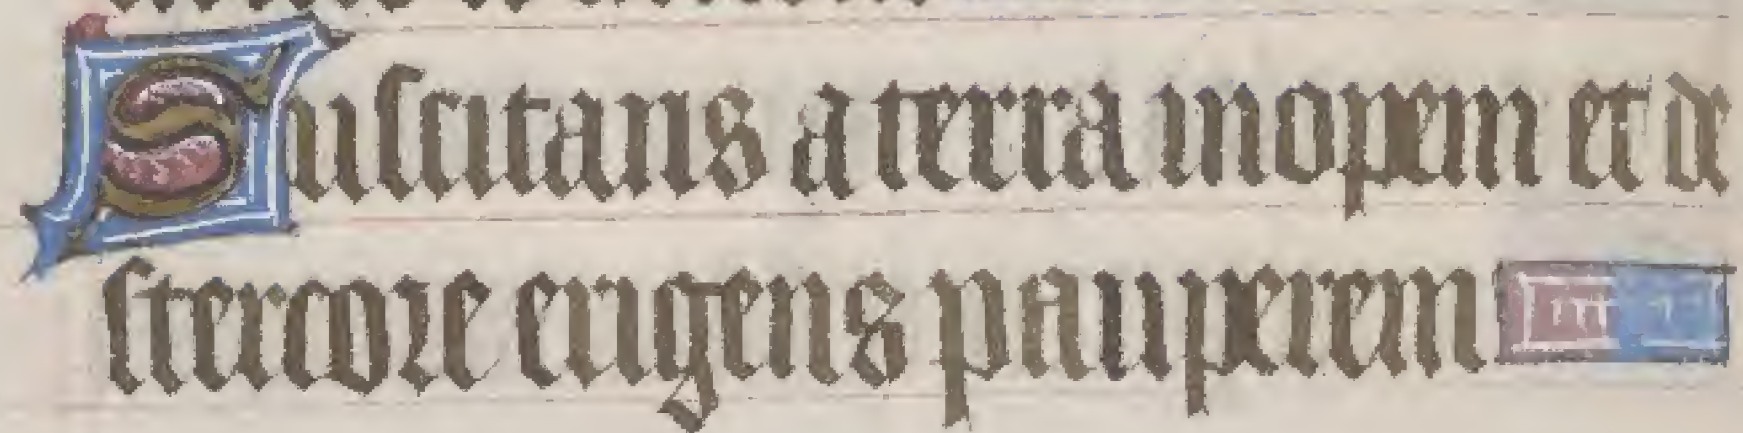 Suscitans a terra inopem et de
stercore erigens pauperem